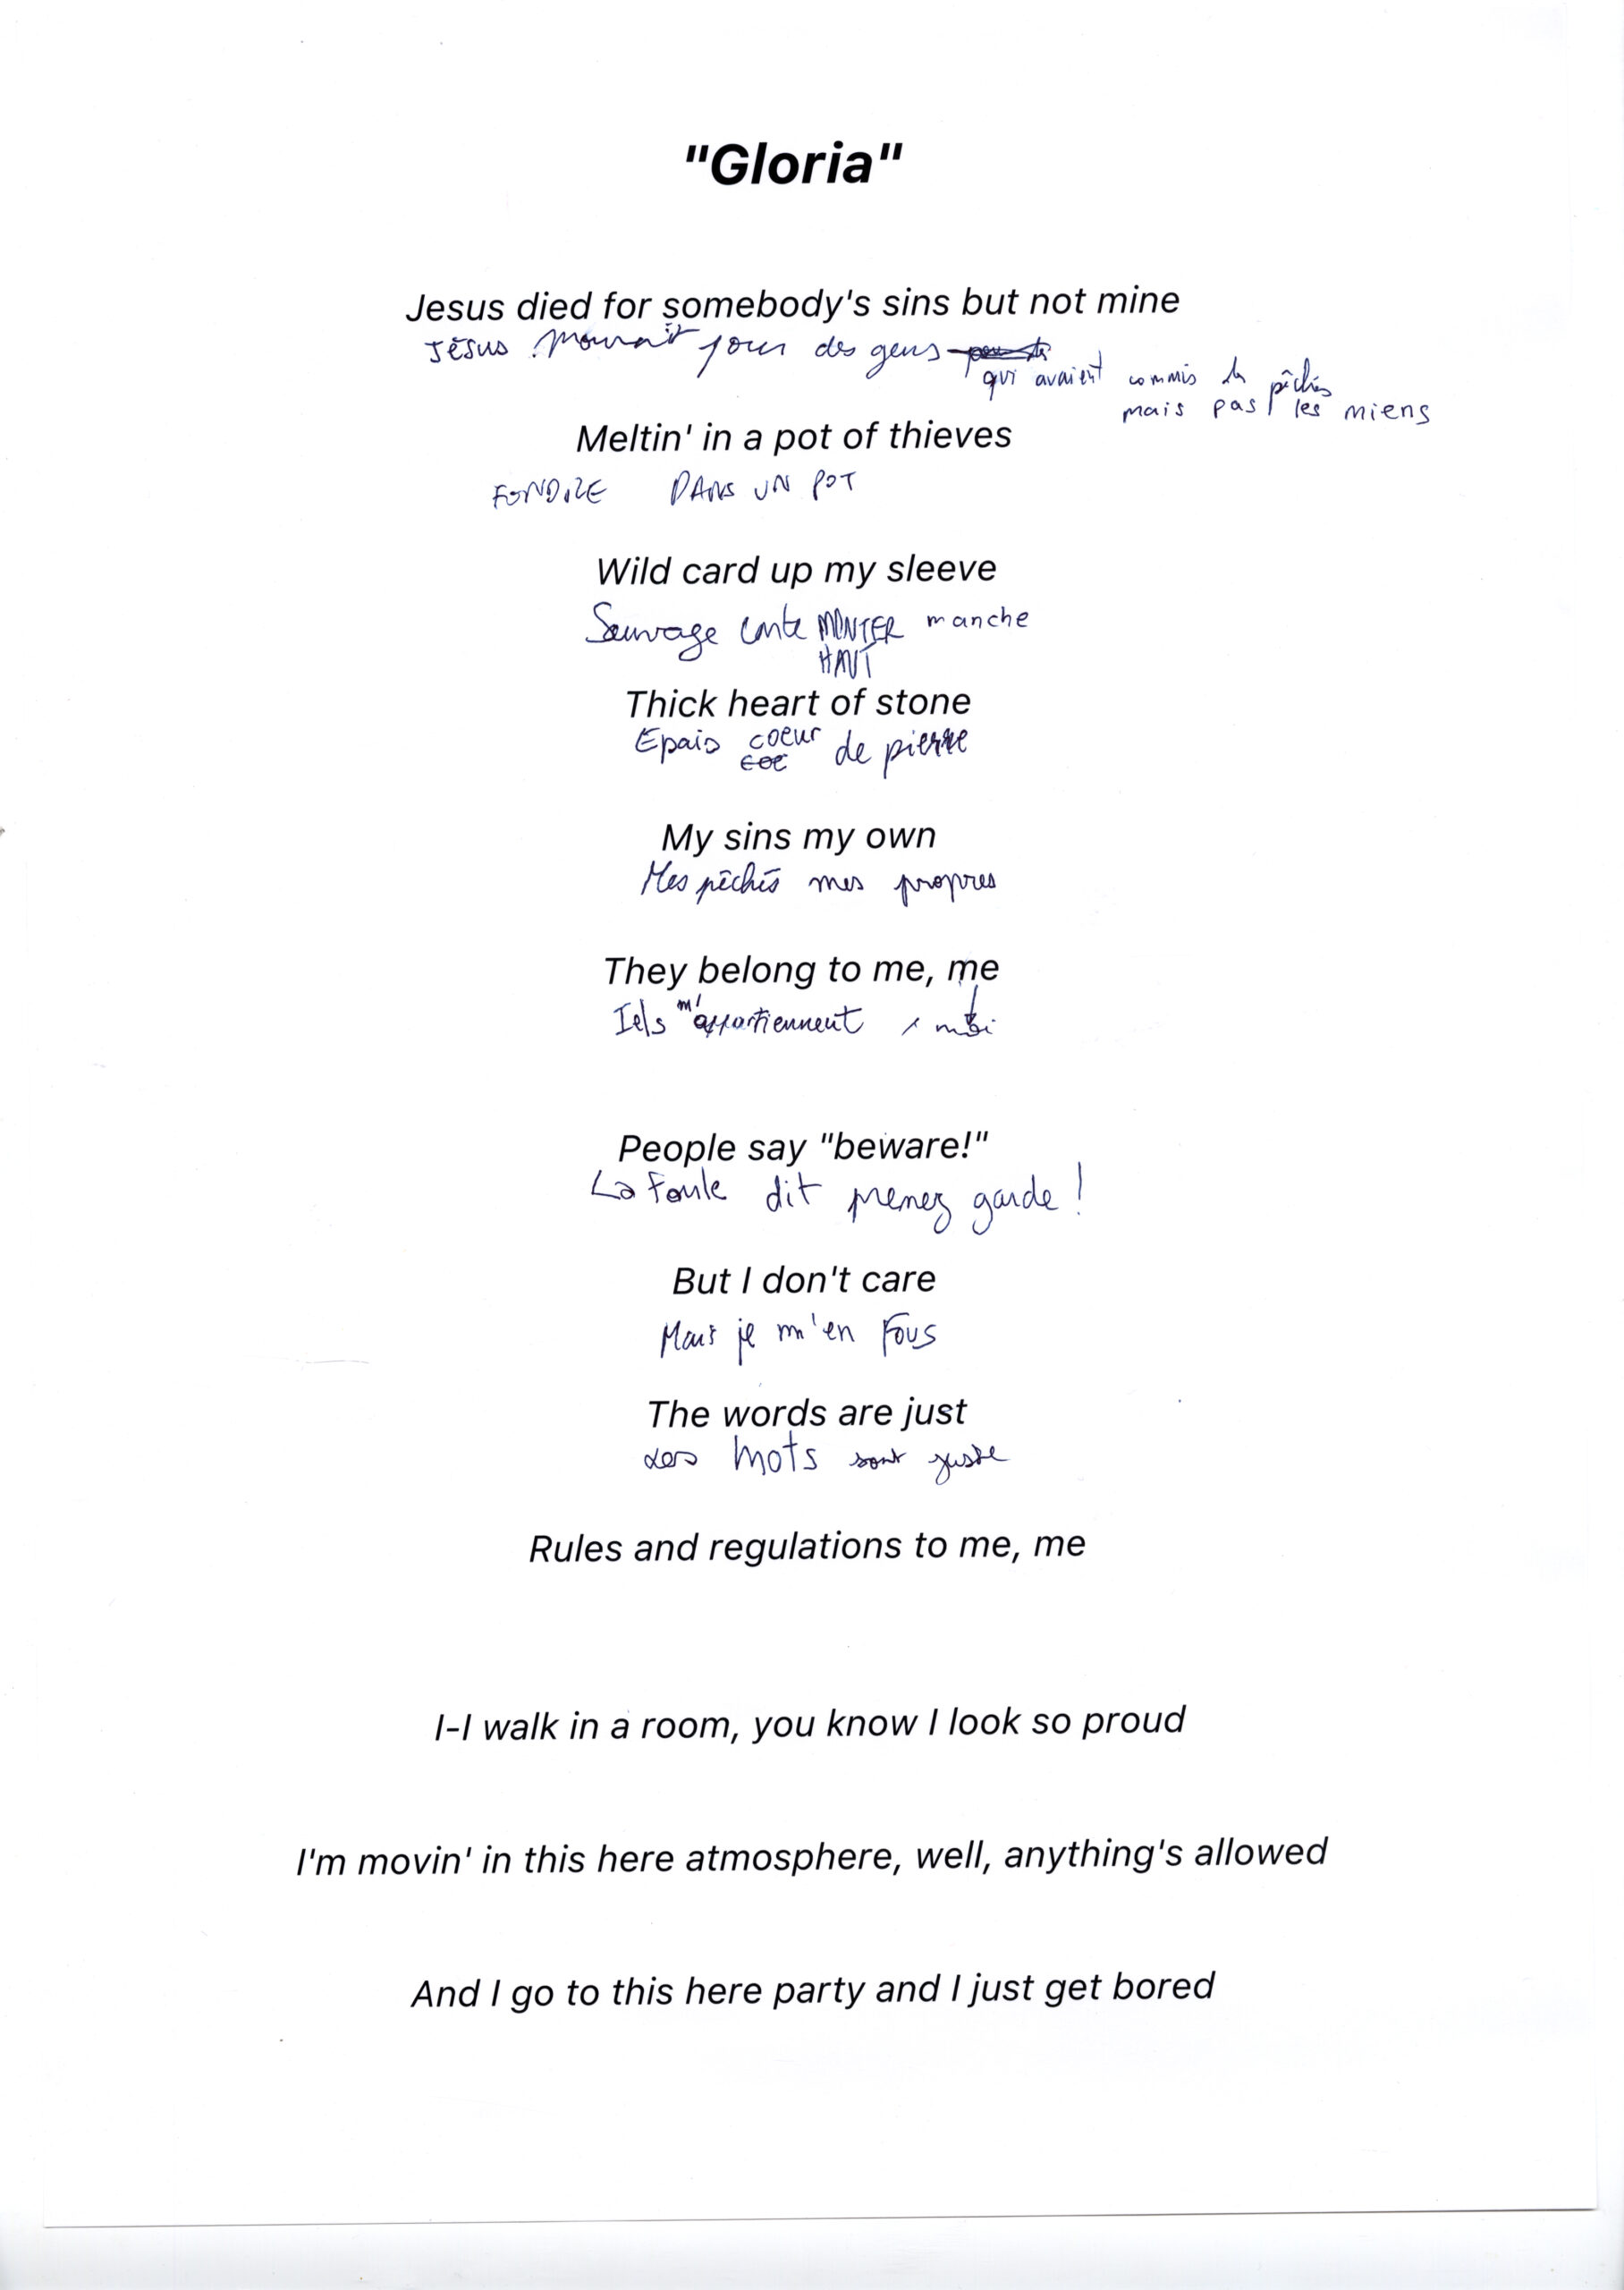 "Gloria"
Jesus died for somebody's sins but not mine
Jésus mourait pour des gens
qui avaient commis des pêchés
mais pas les miens
Meltin' in a pot of thieves
FONDRE DANS UN POT
Wild card up my sleeve
Sauvage carte MONTER manche
HAUT
Thick heart of stone
Epais coeur de pierre
coe
My sins my own
Mes pêchés mes propres
They belong to me, me
Iels m'appartiennent, moi
People say "beware!"
La Foule dit prenez garde !
But I don't care
Mais je m'en Fous
The words are just
Les mots sont juste
Rules and regulations to me, me
I-I walk in a room, you know I look so proud
I'm movin' in this here atmosphere, well, anything's allowed
And I go to this here party and I just get bored